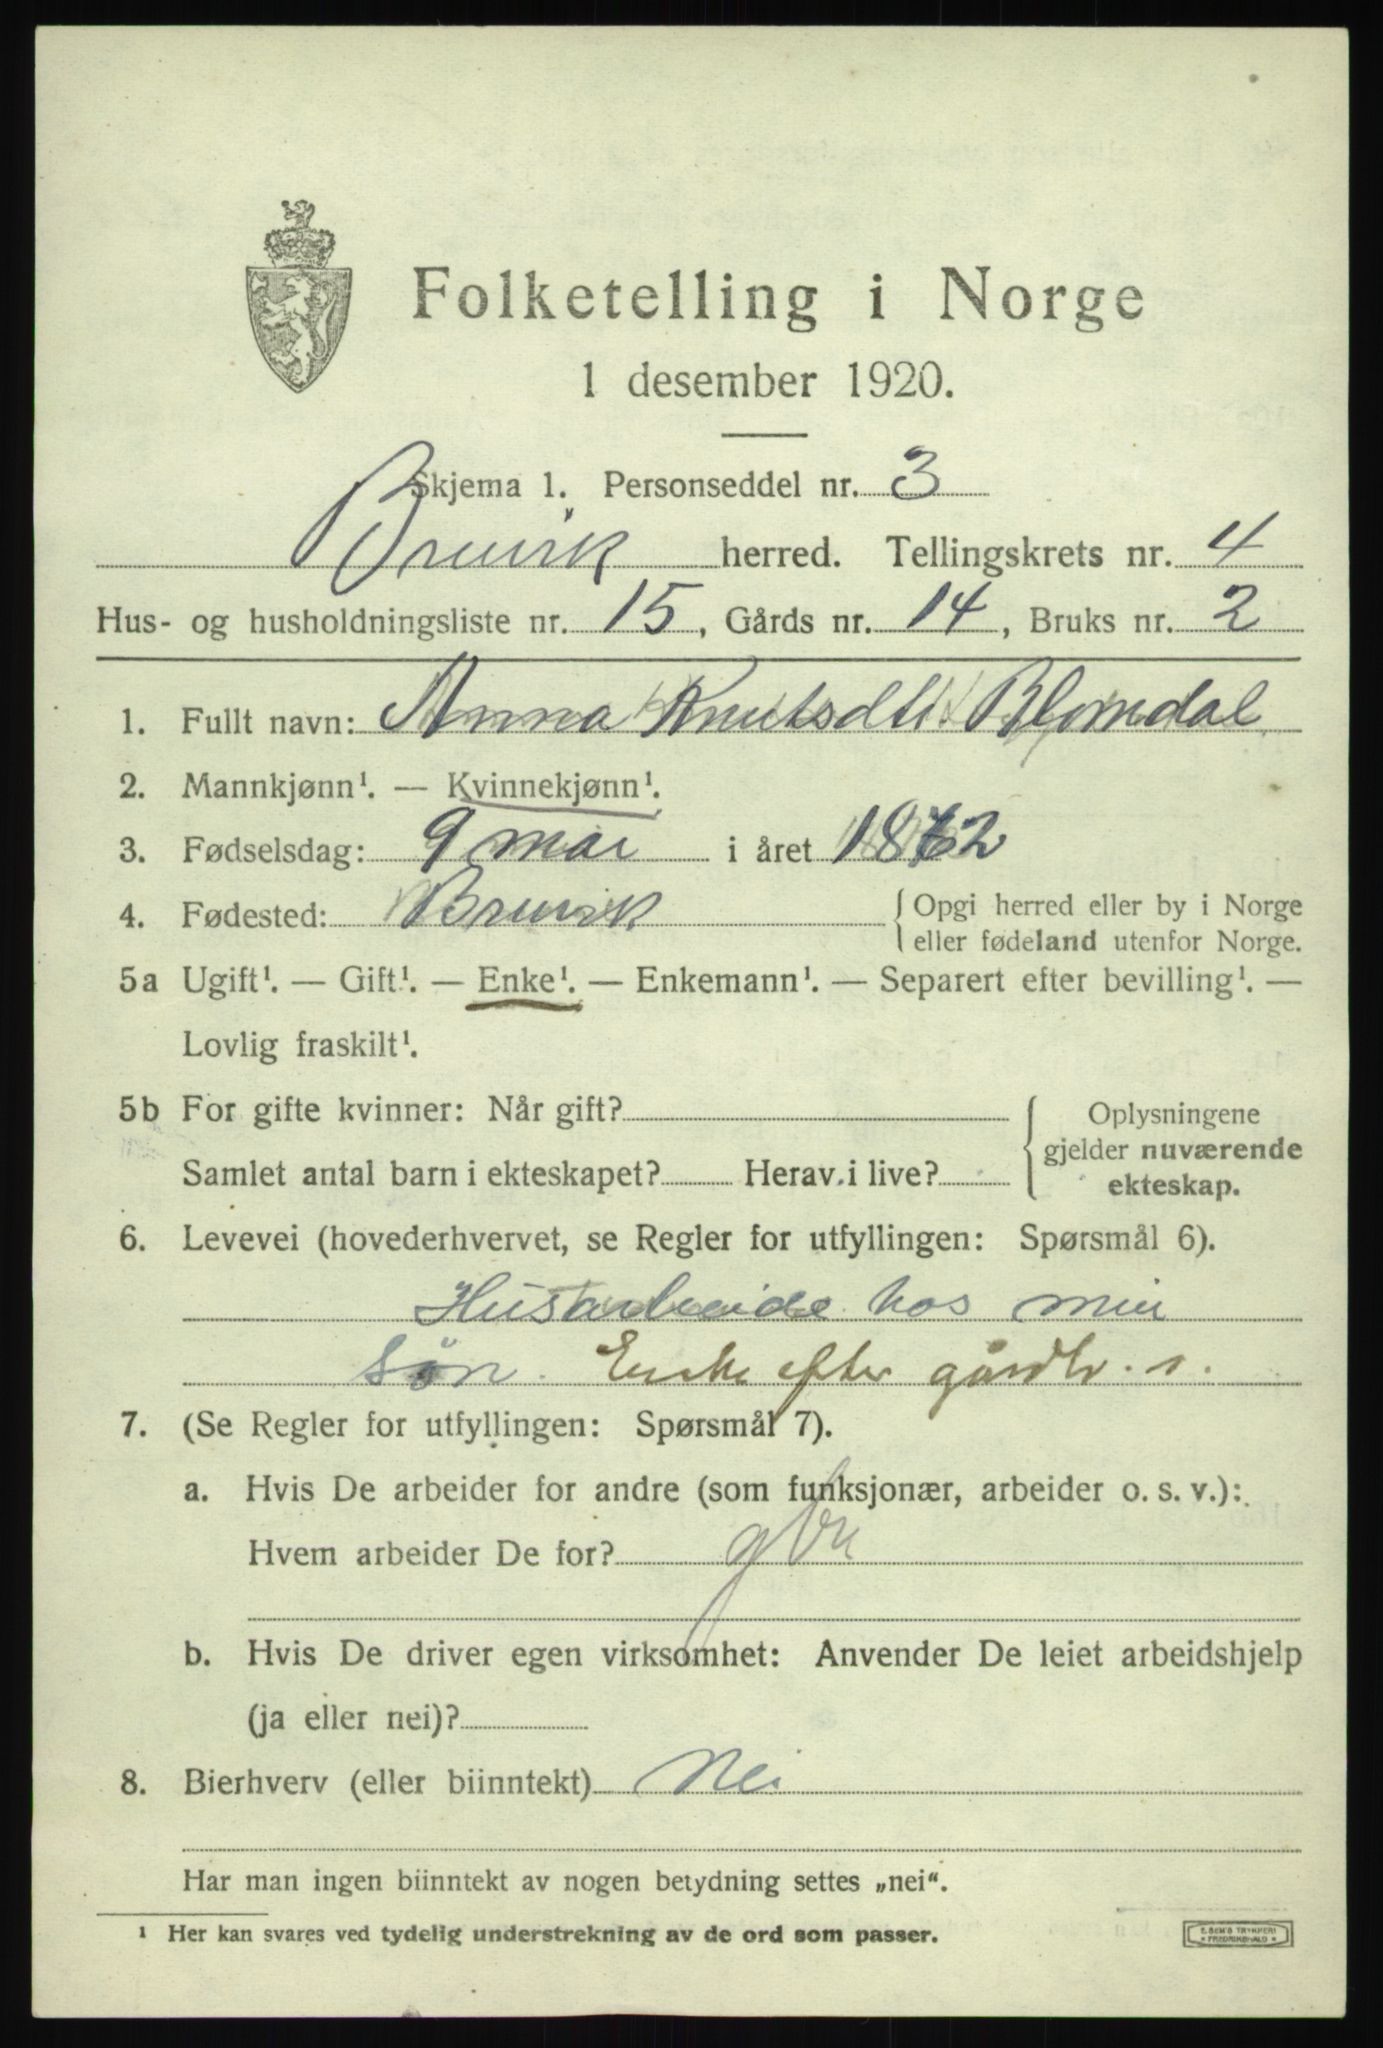 Folketelling i Norge
1 desember 1920.
Skjema 1. Personseddel nr. 3
Bruvik herred. Tellingskrets nr. 4
Hus- og husholdningsliste nr. 15, Gårds nr. 14, Bruks nr. 2
1. Fullt navn: Anna Knutsdtr Blomdal
2. Mannkjønn¹. — Kvinnekjønn¹.
3. Fødselsdag: 9 mai i året 1862
4. Fødested: Bruvik { Opgi herred eller by i Norge
eller fødeland utenfor Norge.
5a Ugift¹. — Gift¹. — Enke¹. — Enkemann¹. — Separert efter bevilling¹. —
Lovlig fraskilt¹.
5b For gifte kvinner: Når gift?
Samlet antal barn i ekteskapet? Herav i live?
{ Oplysningene
gjelder nuværende
ekteskap.
6. Levevei (hovederhvervet, se Regler for utfyllingen: Spørsmål 6).
Husarbeide hos min
søn. Enke efter gårdbr. s.
7. (Se Regler for utfyllingen: Spørsmål 7).
a. Hvis De arbeider for andre (som funksjonær, arbeider o. s. v.):
Hvem arbeider De for?
b. Hvis De driver egen virksomhet: Anvender De leiet arbeidshjelp
(ja eller nei)?
8. Bierhverv (eller biinntekt) Nei
Har man ingen biinntekt av nogen betydning settes „nei“.
¹ Her kan svares ved tydelig understrekning av de ord som passer.
E. SEM'S TRYKKERI
* FREDRIKSHALD *